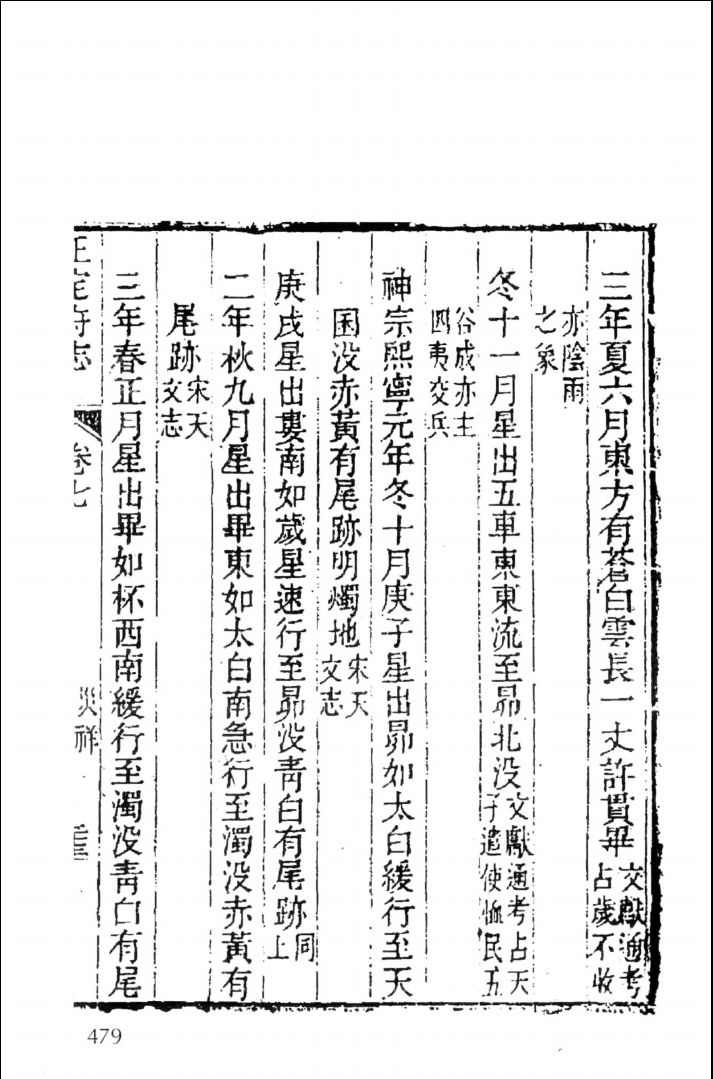 三年夏六月東方有蒼白雲長一丈許貫畢文獻通考占歲不收
亦陰雨之象
冬十一月星出五車東東流至昴北没文獻通考占天子遣使恤民五
谷成亦主四夷交兵
神宗熙寧元年冬十月庚子星出昴如太白緩行至天
囷没赤黃有尾跡明燭地宋天文志
庚戌星出婁南如歲星速行至昴没青白有尾跡同上
二年秋九月星出畢東如太白南急行至濁没赤黃有
尾跡宋天文志
三年春正月星出畢如杯西南緩行至濁没青白有尾
正定府志 卷七 災祥
479